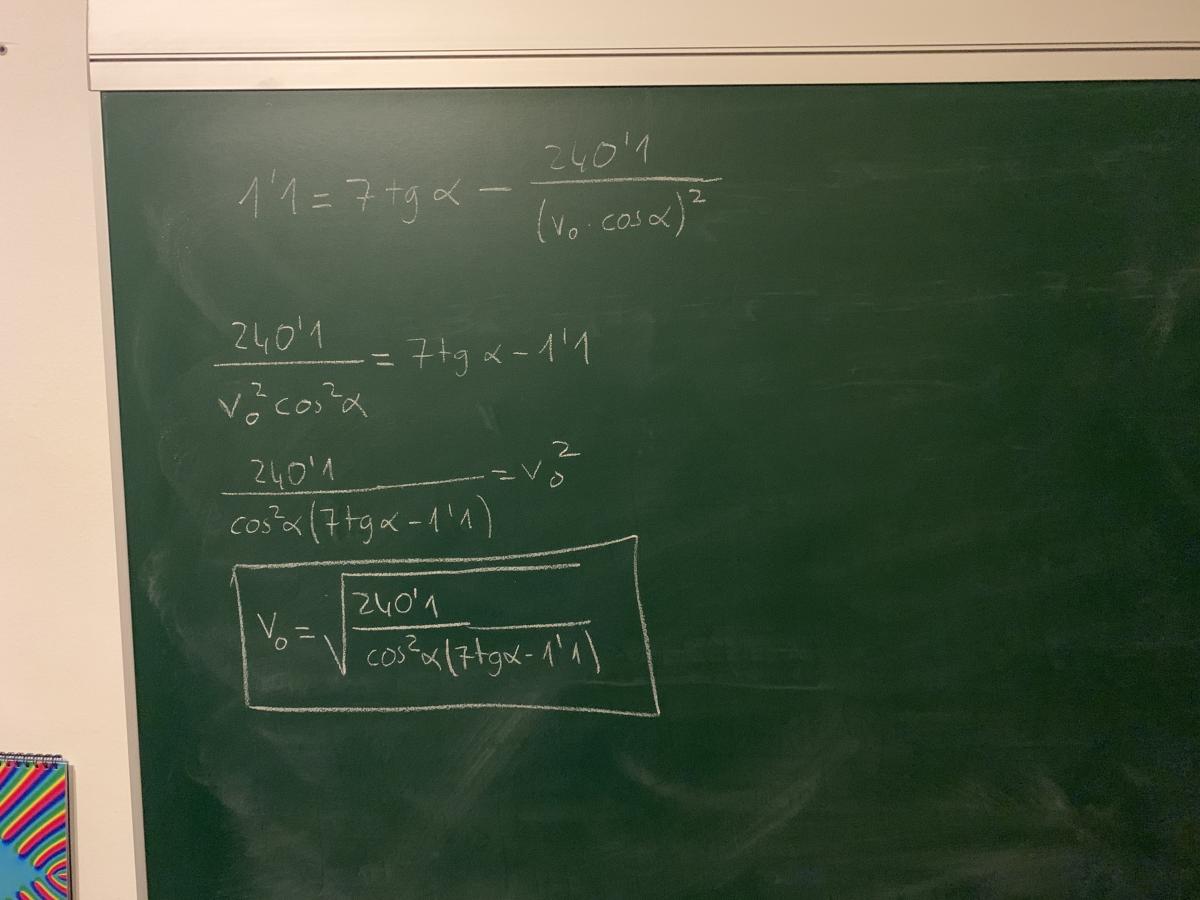 1'1 = 7 tg α − 240'1 / (v₀ · cos α)²
240'1 / v₀² cos² α = 7 tg α − 1'1
240'1 / cos² α (7 tg α − 1'1) = v₀²
v₀ = √(240'1 / cos² α (7 tg α − 1'1))